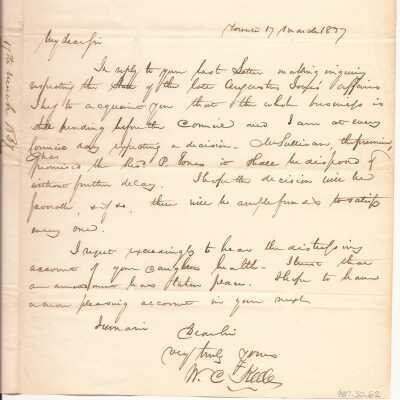 Toronto 17 March 1837
My dear Sir
In reply to your last letter making inquiry
respecting the state of the late Augustus Jones' affairs
I beg to acquaint you that the whole business is
still pending before the Council and I am at every
Council day expecting a decision. Mr Sullivan, the
has
promised the Revd P. Jones it shall be disposed of
without further delay. I hope the decision will be
favorable, & if so, there will be ample funds to satisfy
every one.
I regret exceedingly to hear the distressing
account of your daughters health - I trust that
an amendment has taken place. I hope to have
a more pleasing account in your next
I remain
Dear Sir
very truly yours
W. C.
17th March 1837
987.32.62